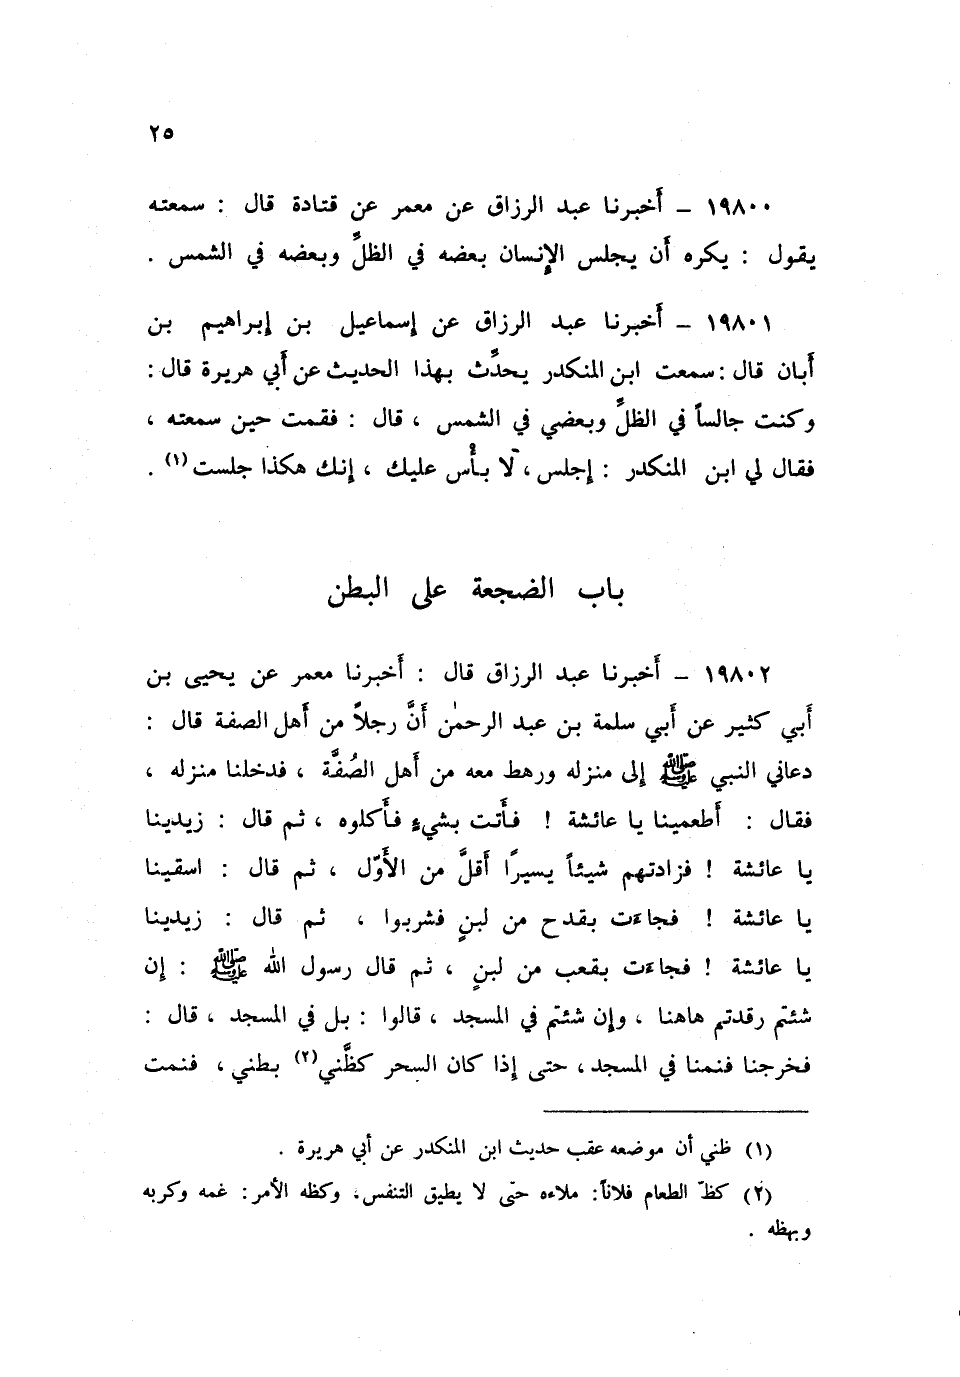 ٢٥
١٩٨٠٠ – أَخبرنا عبد الرزاق عن معمر عن قتادة قال : سمعته
يقول : يكره أَن يجلس الإِنسان بعضه في الظلِّ وبعضه في الشمس .
١٩٨٠١ – أَخبرنا عبد الرزاق عن إِسماعيل بن إِبراهيم بن
أَبان قال : سمعت ابن المنكدر يحدِّث بهذا الحديث عن أَبي هريرة قال :
وكنت جالساً في الظلِّ وبعضي في الشمس ، قال : فقمت حين سمعته ،
فقال لي ابن المنكدر : إِجلس ، لا بأْس عليك ، إِنك هكذا جلست (١) .
باب الضجعة على البطن
١٩٨٠٢ – أَخبرنا عبد الرزاق قال : أَخبرنا معمر عن يحيى بن
أَبي كثير عن أَبي سلمة بن عبد الرحمٰن أَنَّ رجلاً من أَهل الصفة قال :
دعاني النبي ﷺ إِلى منزله ورهط معه من أَهل الصُفَّة ، فدخلنا منزله ،
فقال : أَطعمينا يا عائشة ! فأَتت بشيءٍ فأَكلوه ، ثم قال : زيدينا
يا عائشة ! فزادتهم شيئاً يسيرًا أَقلَّ من الأَوّل ، ثم قال : اسقينا
يا عائشة ! فجاءت بقدح من لبنٍ فشربوا ، ثم قال : زيدينا
يا عائشة ! فجاءت بقعب من لبنٍ ، ثم قال رسول الله ﷺ : إِن
شئتم رقدتم هاهنا ، وإِن شئتم في المسجد ، قالوا : بل في المسجد ، قال :
فخرجنا فنمنا في المسجد ، حتى إِذا كان السحر كظَّني (٢) بطني ، فنمت
(١) ظني أن موضعه عقب حديث ابن المنكدر عن أبي هريرة .
(٢) كظّ الطعام فلاناً : ملاءه حتّى لا يطيق التنفس ، وكظه الأمر : غمه وكربه
وبهظه .